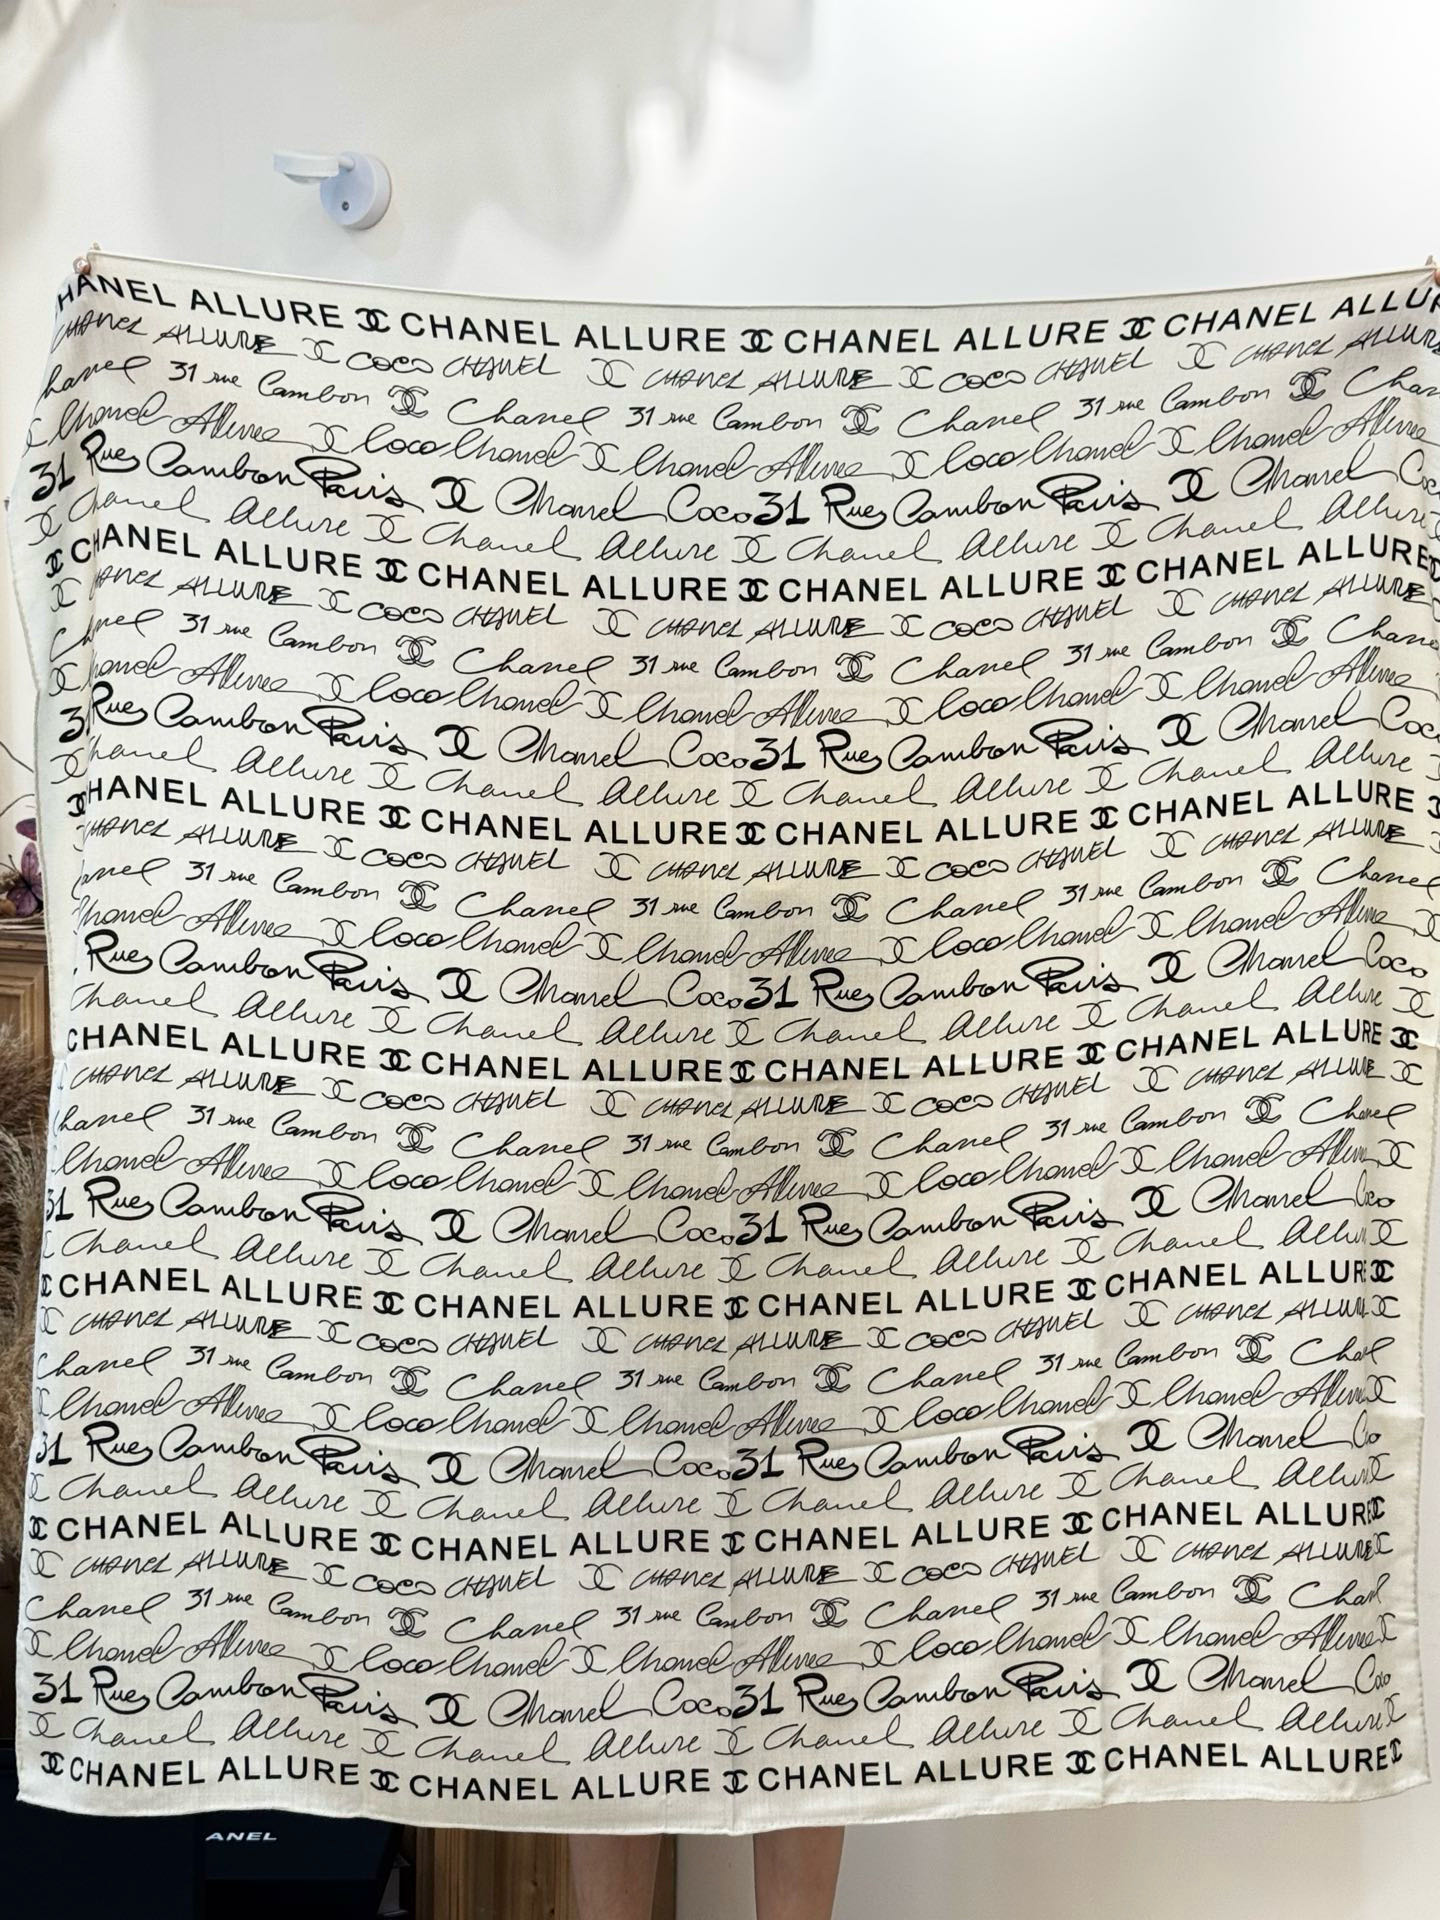 CHANEL ALLURE CHANEL ALLURE CHANEL ALLURE CHANEL
CHANEL ALLURE COCO CHANEL CHANEL ALLURE COCO CHANEL CHANEL ALLURE
31 rue Cambon Chanel 31 rue Cambon Chanel 31 rue Cambon
Chanel Allure Coco Chanel Chanel Allure Coco Chanel Chanel Allure
31 Rue Cambon Paris Chanel Coco 31 Rue Cambon Paris Chanel Coco
Chanel Allure Chanel Allure Chanel Allure Chanel Allure
CHANEL ALLURE CHANEL ALLURE CHANEL ALLURE CHANEL ALLURE
CHANEL ALLURE COCO CHANEL CHANEL ALLURE COCO CHANEL CHANEL ALLURE
31 rue Cambon Chanel 31 rue Cambon Chanel 31 rue Cambon
Allure Coco Chanel Chanel Allure Coco Chanel Chanel Allure
Rue Cambon Paris Chanel Coco 31 Rue Cambon Paris Chanel Coco
Chanel Allure Chanel Allure Chanel Allure Chanel Allure
CHANEL ALLURE CHANEL ALLURE CHANEL ALLURE CHANEL ALLURE
CHANEL ALLURE COCO CHANEL CHANEL ALLURE COCO CHANEL CHANEL ALLURE
31 rue Cambon Chanel 31 rue Cambon Chanel 31 rue Cambon Chanel
Chanel Allure Coco Chanel Chanel Allure Coco Chanel Chanel Allure
Rue Cambon Paris Chanel Coco 31 Rue Cambon Paris Chanel Coco
Chanel Allure Chanel Allure Chanel Allure Chanel Allure
CHANEL ALLURE CHANEL ALLURE CHANEL ALLURE CHANEL ALLURE
CHANEL ALLURE COCO CHANEL CHANEL ALLURE COCO CHANEL CHANEL ALLURE
Chanel 31 rue Cambon Chanel 31 rue Cambon Chanel 31 rue Cambon Chanel
Chanel Allure Coco Chanel Chanel Allure Coco Chanel Chanel Allure
31 Rue Cambon Paris Chanel Coco 31 Rue Cambon Paris Chanel Coco
Chanel Allure Chanel Allure Chanel Allure Chanel
CHANEL ALLURE CHANEL ALLURE CHANEL ALLURE CHANEL ALLURE
CHANEL ALLURE COCO CHANEL CHANEL ALLURE COCO CHANEL CHANEL
Chanel 31 rue Cambon Chanel 31 rue Cambon Chanel 31 rue Cambon
Chanel Allure Coco Chanel Chanel Allure Coco Chanel Chanel
31 Rue Cambon Paris Chanel Coco 31 Rue Cambon Paris Chanel
Chanel Allure Chanel Allure Chanel Allure Chanel
CHANEL ALLURE CHANEL ALLURE CHANEL ALLURE CHANEL ALLURE
CHANEL ALLURE COCO CHANEL CHANEL ALLURE COCO CHANEL CHANEL ALLURE
Chanel 31 rue Cambon Chanel 31 rue Cambon Chanel 31 rue Cambon
Chanel Allure Coco Chanel Chanel Allure Coco Chanel Chanel Allure
31 Rue Cambon Paris Chanel Coco 31 Rue Cambon Paris Chanel Coco
Chanel Allure Chanel Allure Chanel Allure Chanel Allure
CHANEL ALLURE CHANEL ALLURE CHANEL ALLURE CHANEL ALLURE
ANEL